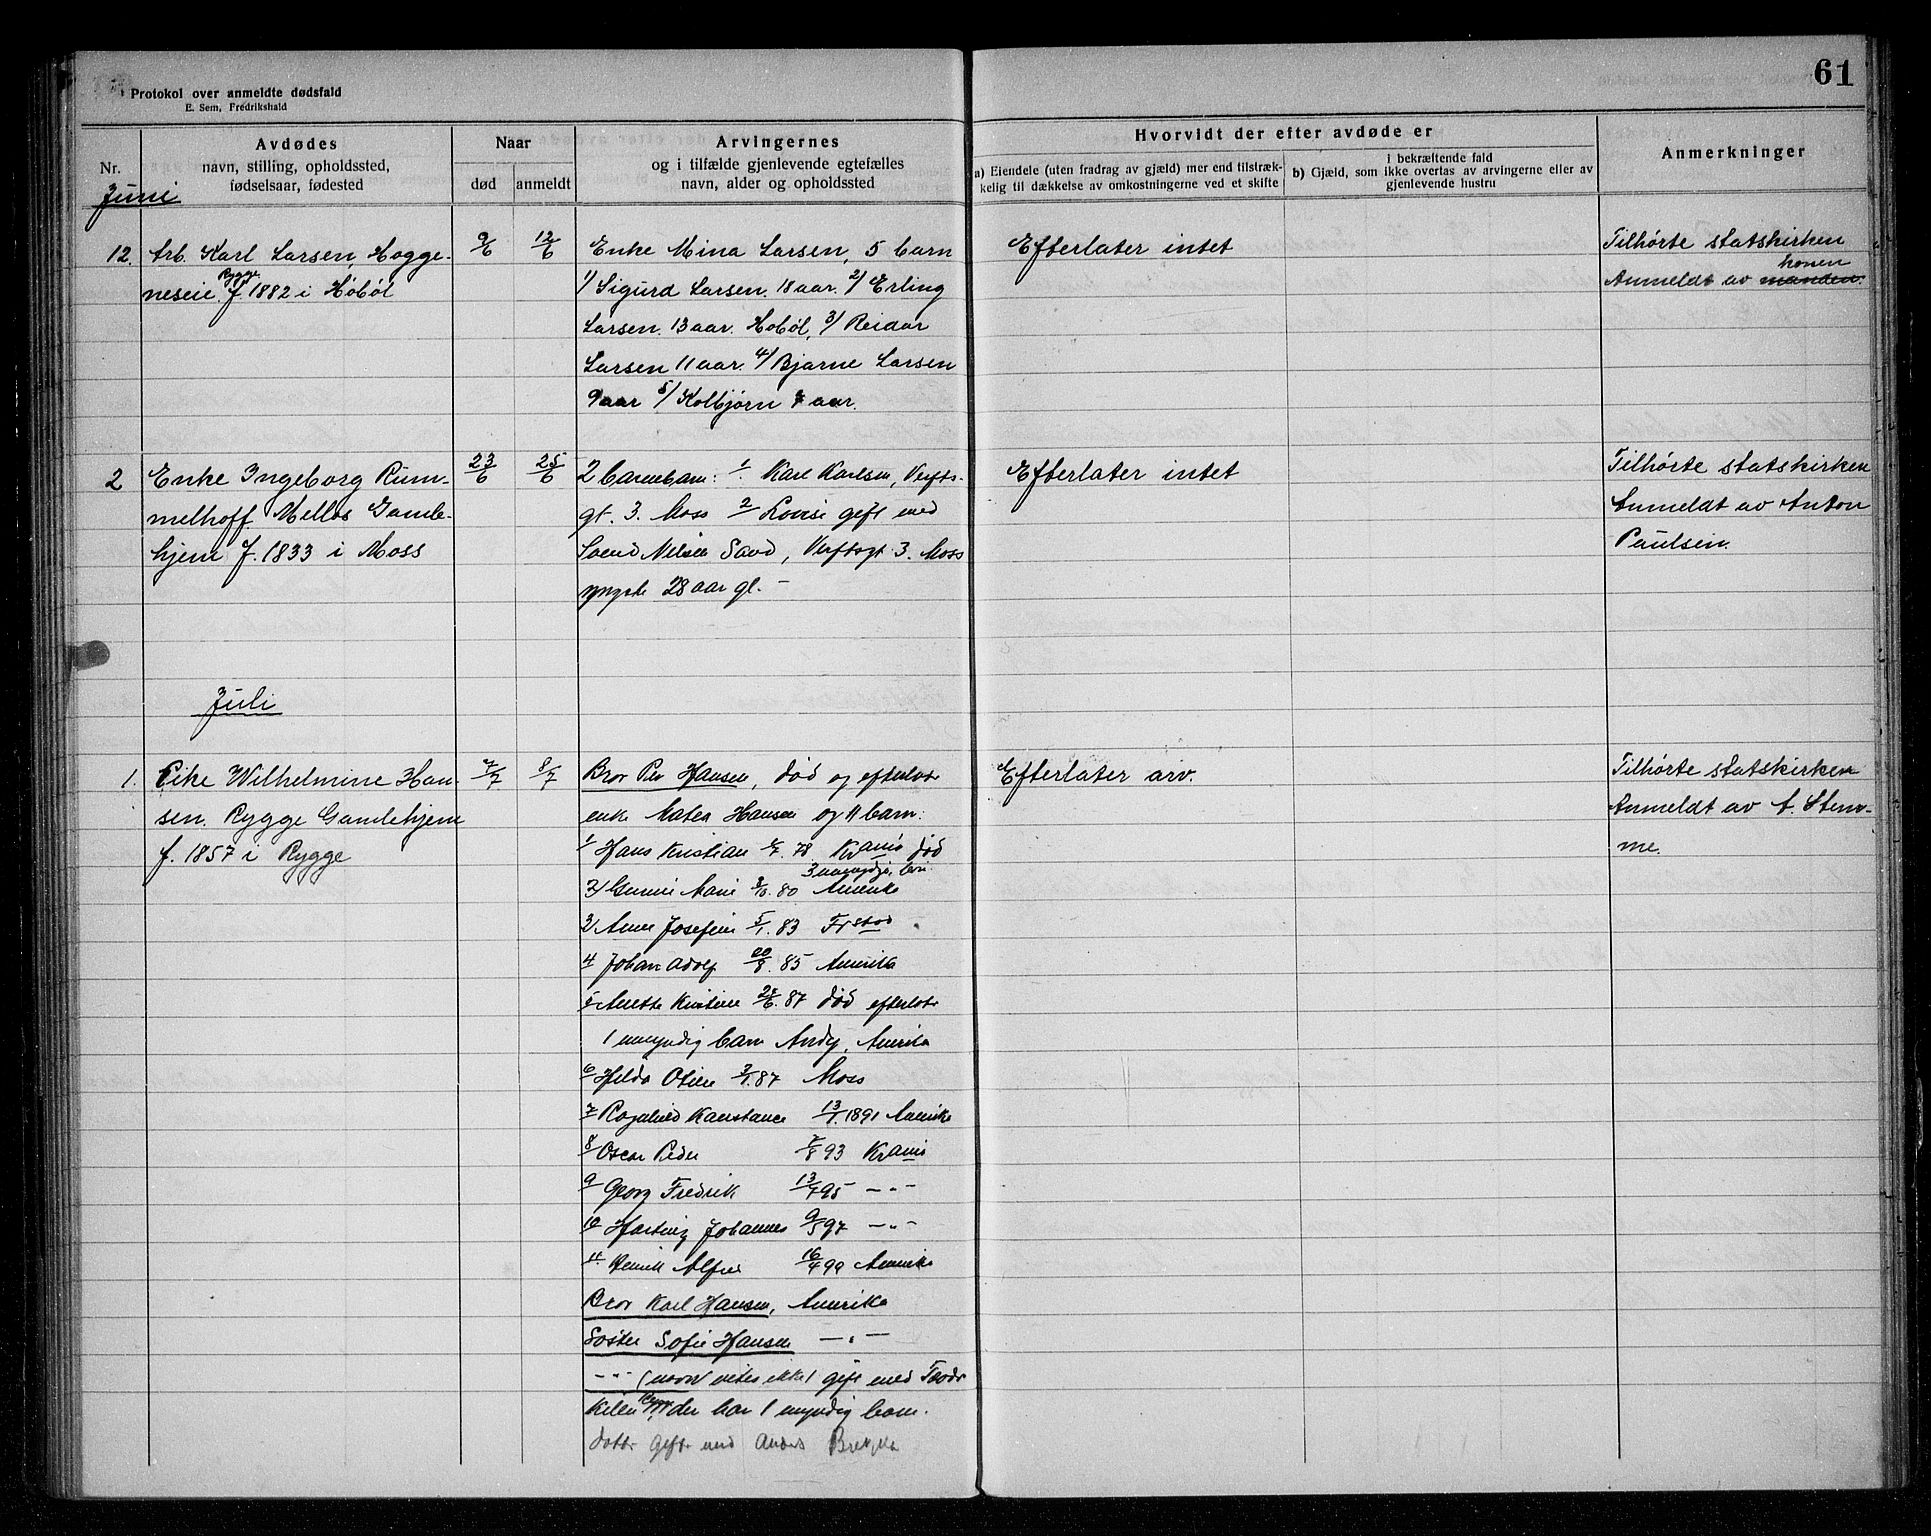 61
Protokol over anmeldte dødsfald
E. Sem, Fredrikshald
Nr.
Avdødes
navn, stilling, opholdssted,
fødselsaar, fødested
Naar
død
anmeldt
Arvingernes
og i tilfælde gjenlevende egtefælles
navn, alder og opholdssted
Hvorvidt der efter avdøde er
a) Eiendele (uten fradrag av gjæld) mer end tilstræk-
kelig til dækkelse av omkostningerne ved et skifte
i bekræftende fald
b) Gjæld, som ikke overtas av arvingerne eller av
gjenlevende hustru
Anmerkninger
Juni
12. Arb. Karl Larsen, Hogge-
neseie. Rygge f. 1882 i Høbøl
9/6
12/6
Enke Mina Larsen, 5 barn
1/ Sigurd Larsen. 18 aar. 2/ Erling
Larsen. 13 aar. Høbøl, 3/ Reidar
Larsen 11 aar. 4/ Bjarne Larsen
9 aar 5/ Kolbjørn 7 aar.
Efterlater intet
Tilhørte statskirken
konen
Anmeldt av manden.
2 Enke Ingeborg Rum-
melhoff. Mellos Gamle-
hjem f. 1833 i Moss
23/6
25/6
2 barnebarn: 1. Karl Karlsen, Verfts-
gt. 3. Moss 2 Lovise gift med
Svend Nilsen Sand, Verftsgt. 3. Moss
yngste 28 aar gl. –
Efterlater intet
Tilhørte statskirken
Anmeldt av Anton
Paulsen.
Juli
1. Pike Wilhelmine Han-
sen. Rygge Gamlehjem
f. 1857 i Rygge
7/7
8/7
Bror Per Hansen, død og efterlot
enke Matea Hansen og 11 barn:
1/ Hans Kristian 78 Kr.ania død
3 umyndige barn
2/ Gunni Marie 80 Amerika
3/ Anne Josefine 5/1. 83 Fr.stad
4 Johan Adolf 20/8. 85 Amerika
5 Anette Kristine 87 død efterlot
1 umyndig barn Andy, Amerika
6 Hilda Otilie 87 Moss
7 Ragnhild Konstance 13/1. 1891 Amerika
8 Oscar Peder 7/8 93 Kr.ania
9 Georg Fredrik 13/4 95 – " –
10 Hartvig Johannes 9/5 97 – " –
11. Henrik Alfred 16/4 99 Amerika
Bror Karl Hansen, Amerika
Søster Sofie Hansen – " –
– " – (navn vites ikke) gift med
Kilen Rygge, der har 1 myndig barn.
datter gift med Anders
Efterlater arv.
Tilhørte statskirken
Anmeldt av A. Stem-
me.